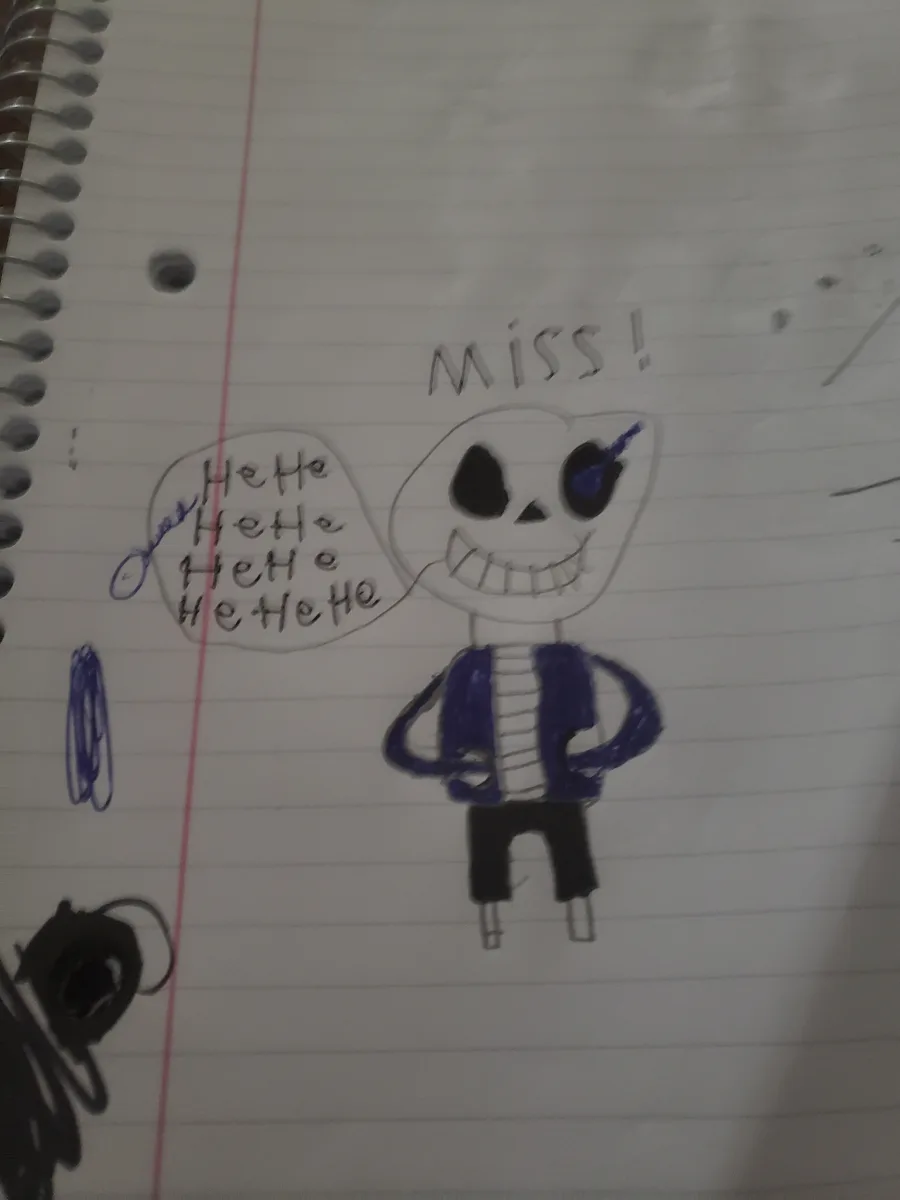 Miss!
HeHe
HeHe
HeHe
HeHeHe